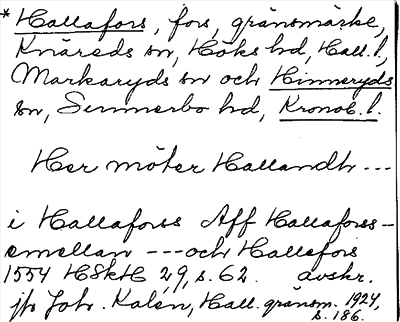 * Hallafors, fors, gränsmärke,
Knäreds sn, Höks hd, Hall. l.,
Markaryds sn och Hinneryds
sn, Sunnerbo hd, Kronob. l.
Her möter Hallandh ---
i Hallaforss Aff Hallaforss-
emellan --- och Hallefors
1554 HSkH 29, s. 62. avskr.
jfr Joh. Kalén, Hall. gränsm. 1924,
s. 186.